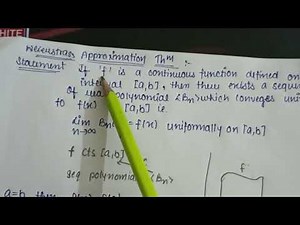 HITE
Weierstrass Approximation Thm :-
Statement If 'f' is a continuous function defined on
interval [a,b], then there exists a sequ
of real polynomial <Bn> which converges uni
to f(x) [a,b] i.e.
lim Bn = f(x) uniformly on [a,b]
n→∞
f cts [a,b]
f
seq polynomial <Bn>
a=b